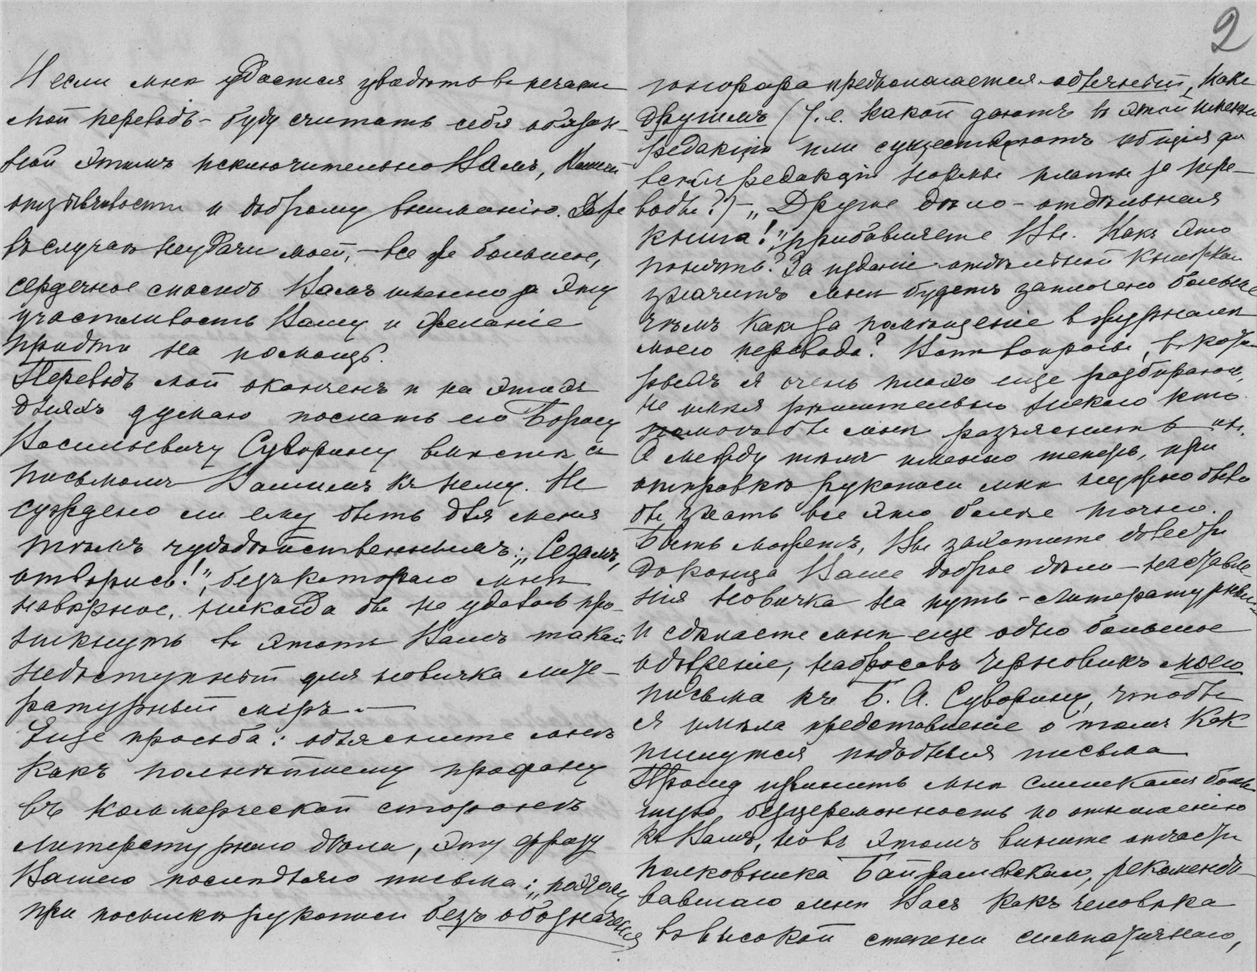 И если мнѣ удастся увидѣть въ печати
мой переводъ – буду считать себя обязан-
ной этимъ исключительно Вамъ, Вашей
отзывчивости и доброму вниманію. Даже
въ случаѣ неудачи моей, – все же большое,
сердечное спасибо Вамъ именно за эту
участливость Вашу и желаніе
придти на помощь.
Переводъ мой оконченъ и на этихъ
дняхъ думаю послать его Борису
Васильевичу Суворину вмѣстѣ съ
письмомъ Вашимъ къ нему. Не
суждено ли ему быть для меня
тѣмъ чудодѣйственнымъ: „Сезамъ,
отворись!", безъ котораго мнѣ
навѣрное, никогда бы не удалось про-
никнуть въ этотъ Вамъ такой
недоступный для новичка лите-
ратурный міръ. –
Еще просьба: объясните мнѣ
какъ полнѣйшему профану
въ коммерческой сторонѣ
литературнаго дѣла, эту фразу
Вашего послѣдняго письма: „потому
при посылкѣ рукописи безъ обозначенія
2
гонорара предполагается обычный, какъ
другимъ (т.е. какой даютъ въ этой именно
редакціи или существуютъ общія для
всѣхъ редакцій нормы платы за пере-
воды?) – „Другое дѣло – отдѣльная
книга!", прибавляете Вы. Какъ это
понять? За изданіе отдѣльной книжкой
значитъ мнѣ будетъ заплачено больше
чѣмъ какъ за помѣщеніе въ журналѣ
моего перевода? Вотъ вопросы, въ кото-
рыхъ я очень плохо еще разбираюсь,
не имѣя рѣшительно никого кто
помогъ бы мнѣ разъяснить ихъ.
А между тѣмъ именно теперь, при
отправкѣ рукописи мнѣ нужно было
бы знать все это болѣе точно.
Быть можетъ, Вы захотите довести
до конца Ваше доброе дѣло – наставле-
нія новичка на путь – литературный
и сдѣлаете мнѣ еще одно большое
одолженіе, набросавъ черновикъ моего
письма къ Б. А. Суворину, чтобы
я имѣла представленіе о томъ какъ
пишутся подобныя письма
Прошу извинить мнѣ слишкомъ боль-
шую безцеремонность по отношенію
къ Вамъ, но въ этомъ вините отчасти
полковника Байрашевскаго, рекомендо-
вавшаго мнѣ Васъ какъ человѣка
въ высокой степени симпатичнаго,